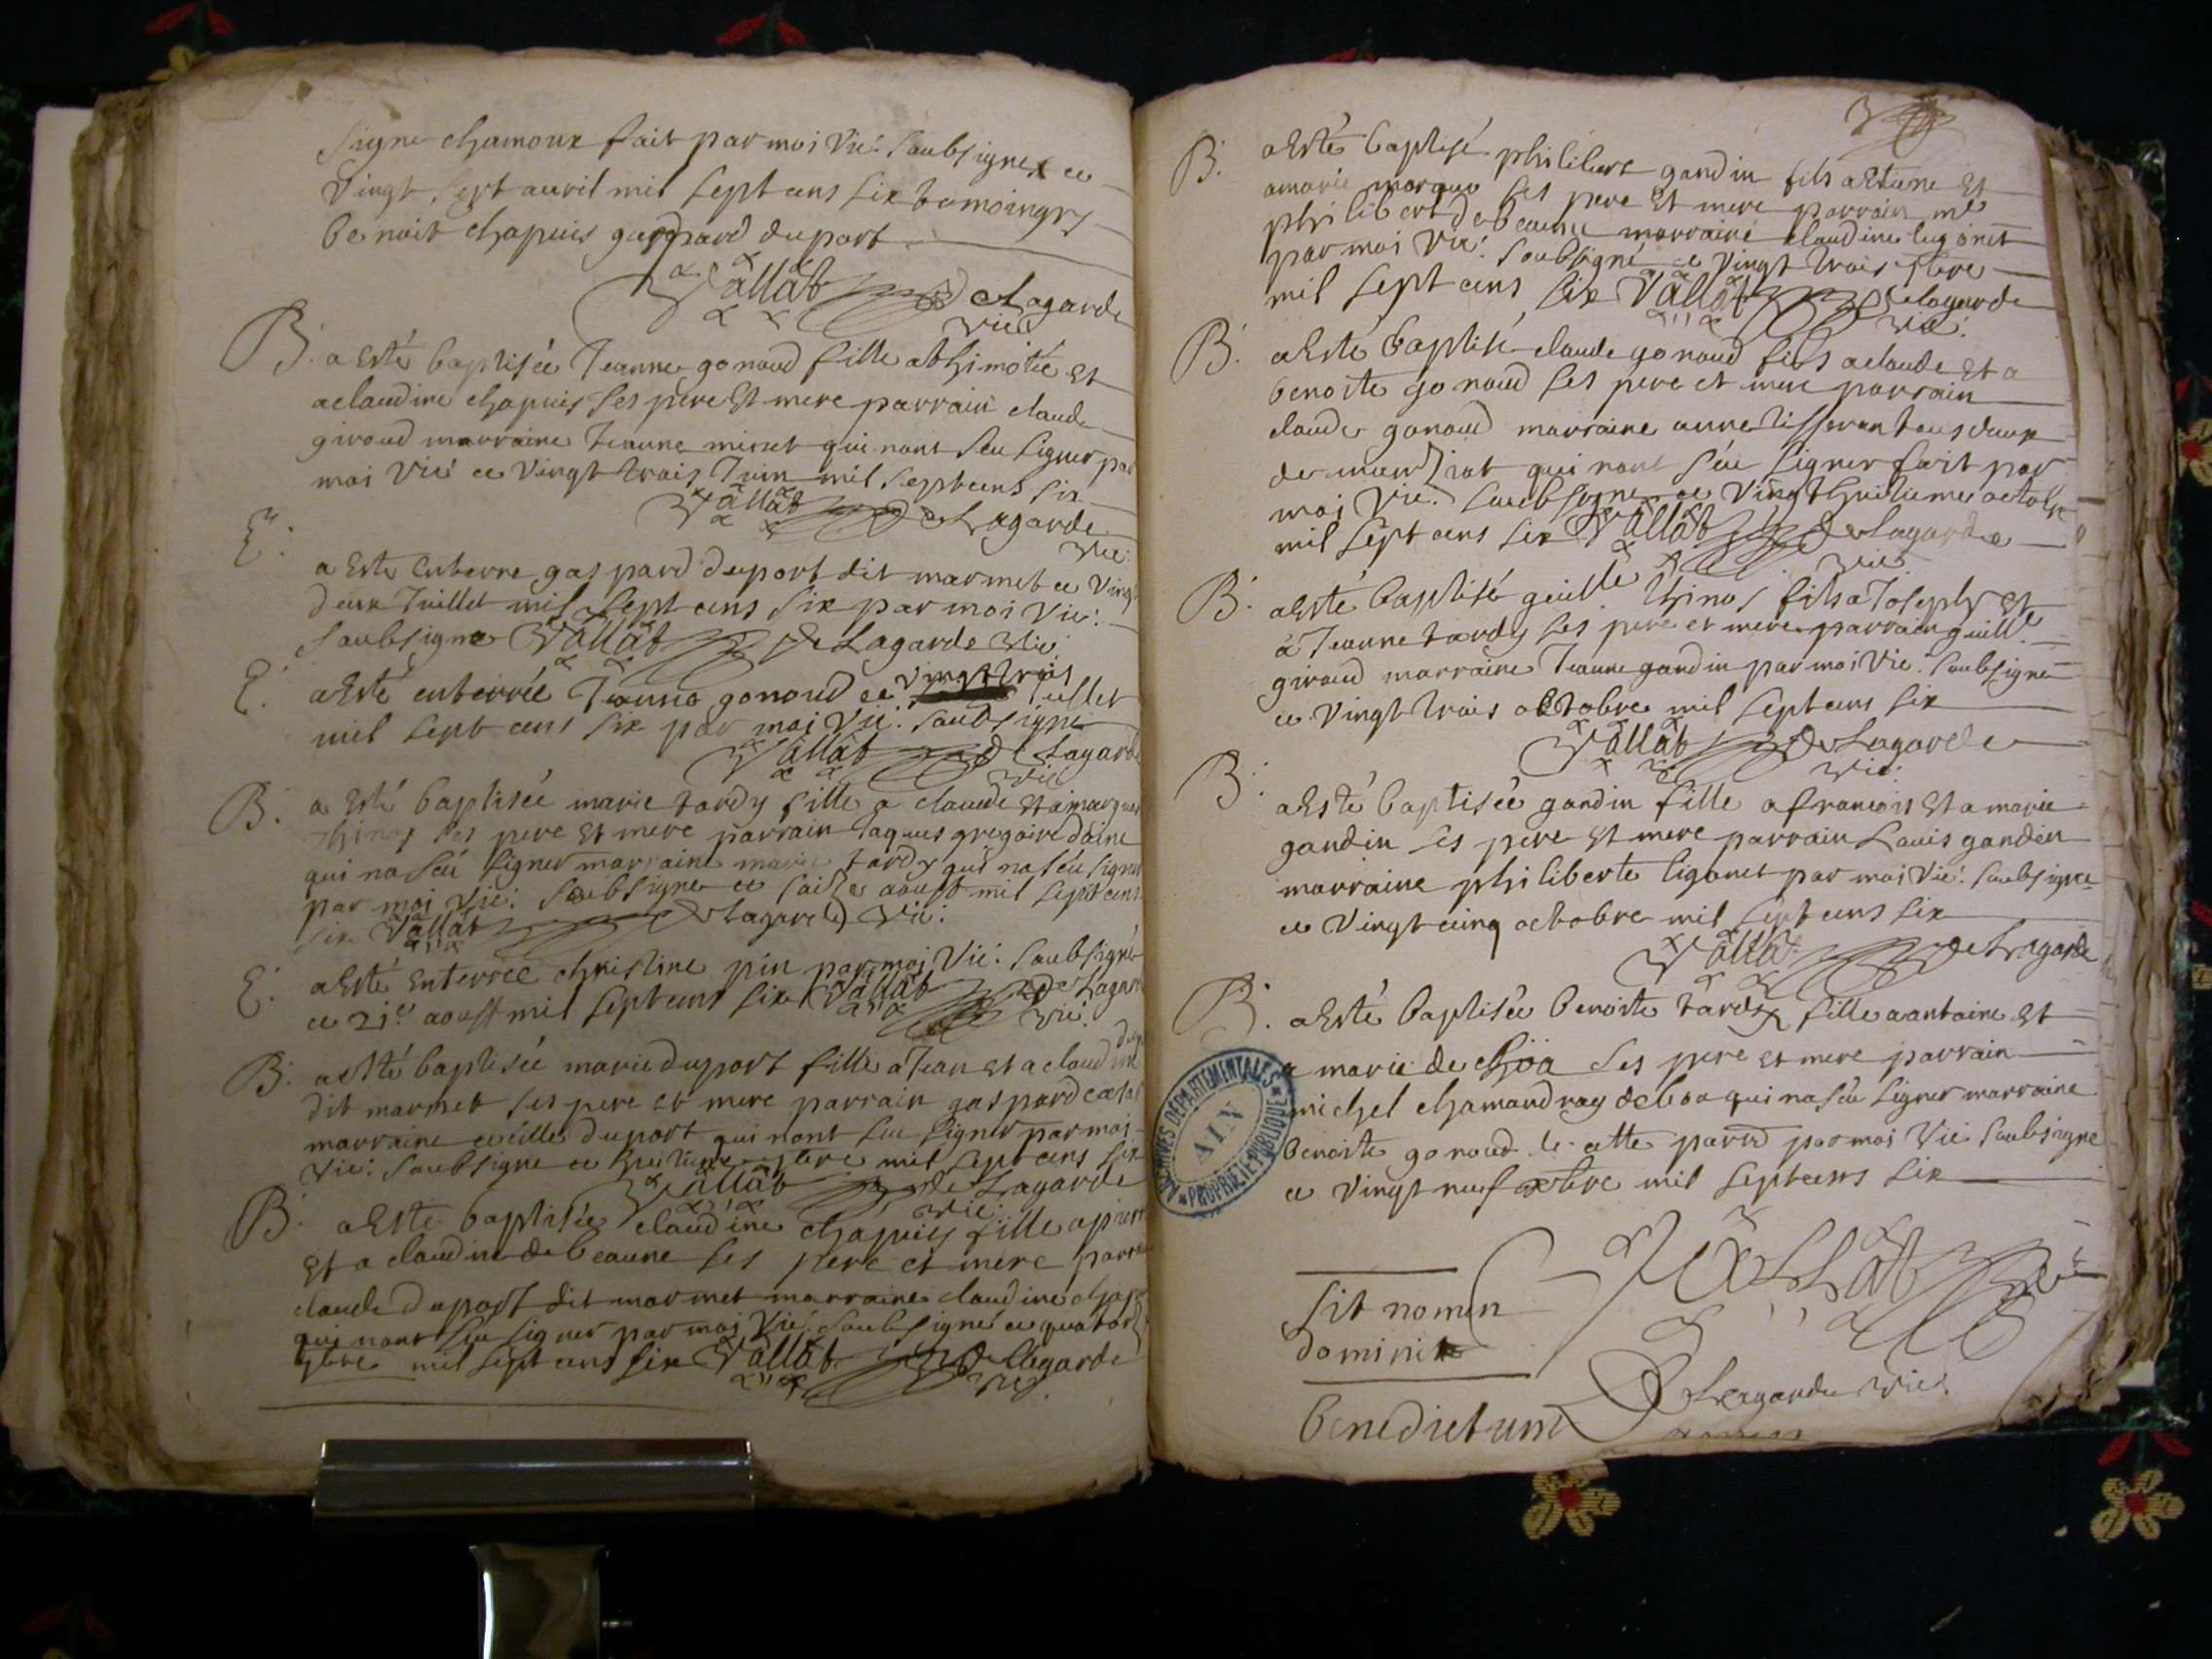 signe chamoux fait par moi Vic: soubsigne ce
Vingt sept auril mil sept cens six
benoit chapuis gaspard duport
Vallat DeLagarde
vic:
B. a Esté baptisée Jeanne gonoud fille a thimotée Et
a claudine chapuis ses pere Et mere parrain claude
giroud marraine Jeanne qui nont sçu signer par
moi Vic: ce Vingt trois Juin mil sept cens six
Vallat DeLagarde
vic:
E. a Esté Enterre gaspard duport dit marmet ce Vingt
deux Juillet mil sept cens six par moi Vic:
soubsigne Vallat DeLagarde vic:
E. a Esté enterrée Jeanne gonoud ce Vingt trois Juillet
mil sept cens six par moi Vic: soubsigne
Vallat DeLagarde
vic:
B. a Esté baptisée marie tardy fille a claude Et a
thinos ses pere Et mere parrain Jaques gregoire
qui na sçu signer marraine marie tardy qui na sçu signer
par moi Vic: soubsigne ce saize aoust mil sept cens
six Vallat DeLagarde vic:
E. a Esté Enterrée christine pin par moi Vic: soubsigné
ce 21e aoust mil sept cens six Vallat DeLagarde
vic:
B. a esté baptisée marie duport fille a Jean Et a claudine
dit marmet ses pere et mere parrain gaspard
marraine duport qui nont sçu signer par moi
Vic: soubsigne ce mil sept cens six
Vallat DeLagarde
vic:
B. a Esté baptisée claudine chapuis fille a pierre
Et a claudine debeaune ses pere et mere
claude duport dit marmet marraine claudine
qui nont sçu signer par moi Vic: soubsigné ce
mil sept cens six Vallat DeLagarde
vic:
B. a Esté baptisé philibert gandin fils a Et
a marie ses pere Et mere parrain
philibert debeaune marraine claudine ligonet
par moi Vic: soubsigné ce Vingt trois
mil sept cens six Vallat DeLagarde
vic:
B. a Esté baptisé claude gonoud fils a claude Et a
benoite gonoud ses pere et mere parrain
claude gonoud marraine anne tisseran tous deux
de qui nont sçu signer fait par
moi Vic: soubsigne ce Vingt huitieme octobre
mil sept cens six Vallat DeLagarde
vic:
B. a Esté baptisé guille thinos fils a Joseph Et
a Jeanne tardy ses pere et mere parrain guille
giroud marraine Jeanne gandin par moi Vic: soubsigne
ce Vingt trois octobre mil sept cens six
Vallat DeLagarde
vic:
B. a Esté baptisée gandin fille a francois Et a marie
gandin ses pere Et mere parrain Louis gandin
marraine philiberte ligonet par moi Vic: soubsigne
ce Vingt cinq octobre mil sept cens six
Vallat DeLagarde
B. a Esté baptisée benoite tardy fille a antoine Et
a marie de ses pere et mere parrain
michel qui na sçu signer marraine
benoite gonoud de cette par moi Vic: soubsigne
ce Vingt neuf mil sept cens six
sit nomen
domini
benedictum
Vallat
DeLagarde vic:
ARCHIVES DEPARTEMENTALES
AIN
PROPRIETE PUBLIQUE